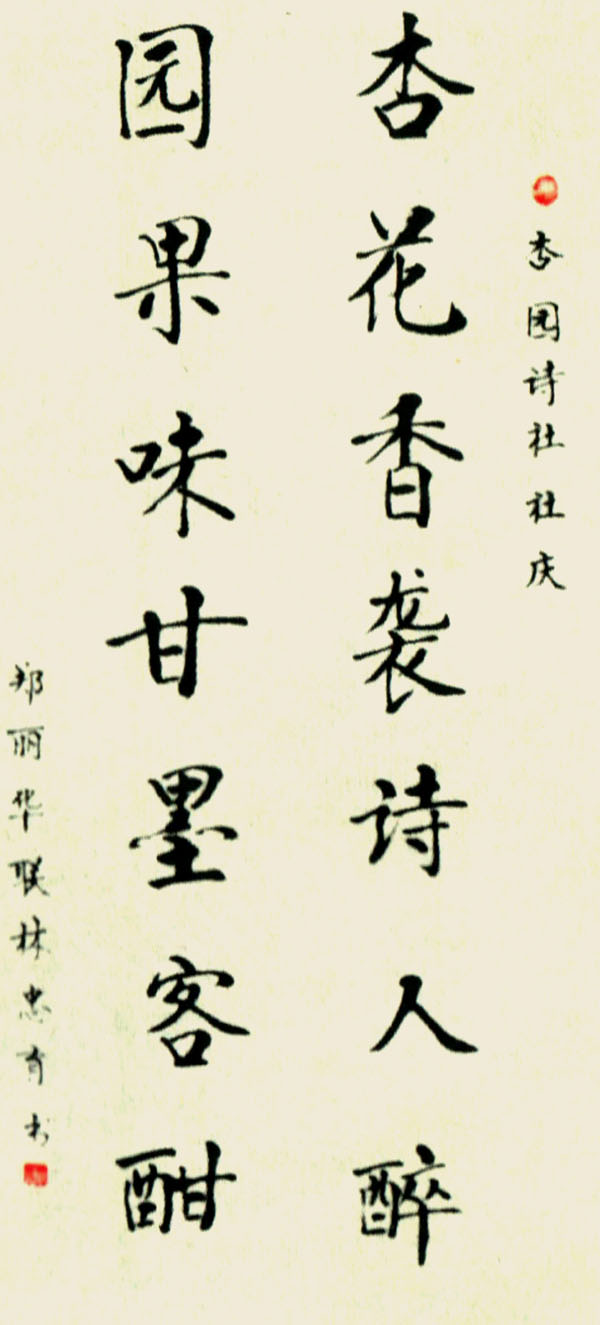 杏园诗社社庆
杏花香袭诗人醉
园果味甘墨客酣
郑丽华联林忠育书